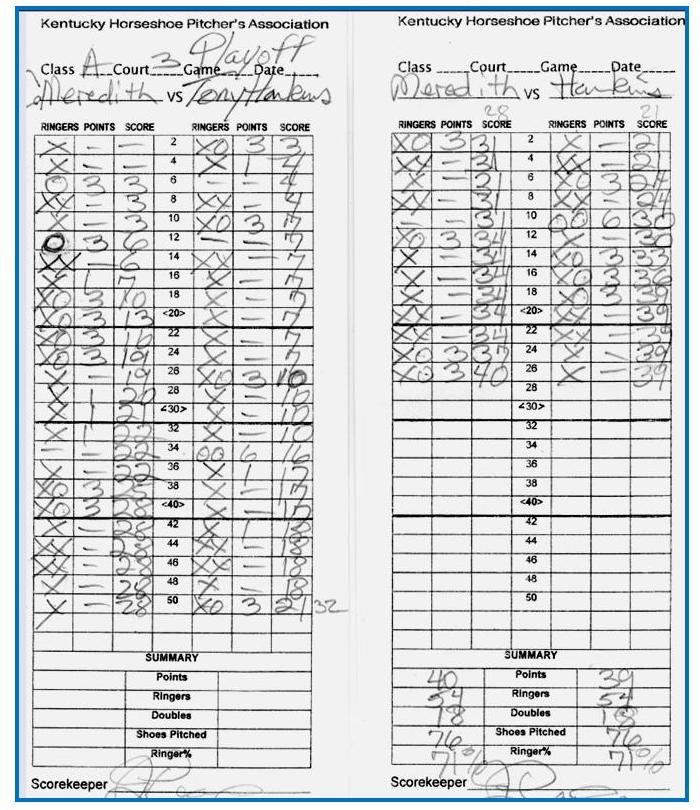 Kentucky Horseshoe Pitcher's Association
Class A Court 3 Game Playoff Date
Meredith vs Tony Hankins
RINGERS POINTS SCORE RINGERS POINTS SCORE
X - - 2 XO 3 3
X - - 4 X 1 4
O 3 3 6 - - 4
XX - 3 8 XX - 4
X - 3 10 XO 3 7
O 3 6 12 - - 7
XX - 6 14 XX - 7
X 1 7 16 X - 7
XO 3 10 18 X - 7
XO 3 13 <20> X - 7
XO 3 16 22 X - 7
XO 3 19 24 X - 7
X - 19 26 XO 3 10
X 1 20 28 X - 10
X 1 21 <30> X - 10
X 1 22 32 X - 10
- - 22 34 OO 6 16
X - 22 36 X 1 17
XO 3 25 38 X - 17
XO 3 28 <40> X - 17
X - 28 42 X 1 18
XX - 28 44 XX - 18
XX - 28 46 XX - 18
X - 28 48 X - 18
X - 28 50 XO 3 21 32
SUMMARY
Points
Ringers
Doubles
Shoes Pitched
Ringer%
Scorekeeper
Kentucky Horseshoe Pitcher's Association
Class Court Game Date
Meredith vs Hankins
28 21
RINGERS POINTS SCORE RINGERS POINTS SCORE
XO 3 31 2 X - 21
XX - 31 4 XX - 21
X - 31 6 XO 3 24
XX - 31 8 XX - 24
- - 31 10 OO 6 30
XO 3 34 12 X - 30
X - 34 14 XO 3 33
X - 34 16 XO 3 36
X - 34 18 XO 3 39
XX - 34 <20> XX - 39
XX - 34 22 XX - 39
XO 3 37 24 X - 39
XO 3 40 26 X - 39
28
<30>
32
34
36
38
<40>
42
44
46
48
50
SUMMARY
40 Points 39
54 Ringers 54
18 Doubles 18
76 Shoes Pitched 76
71% Ringer% 71%
Scorekeeper